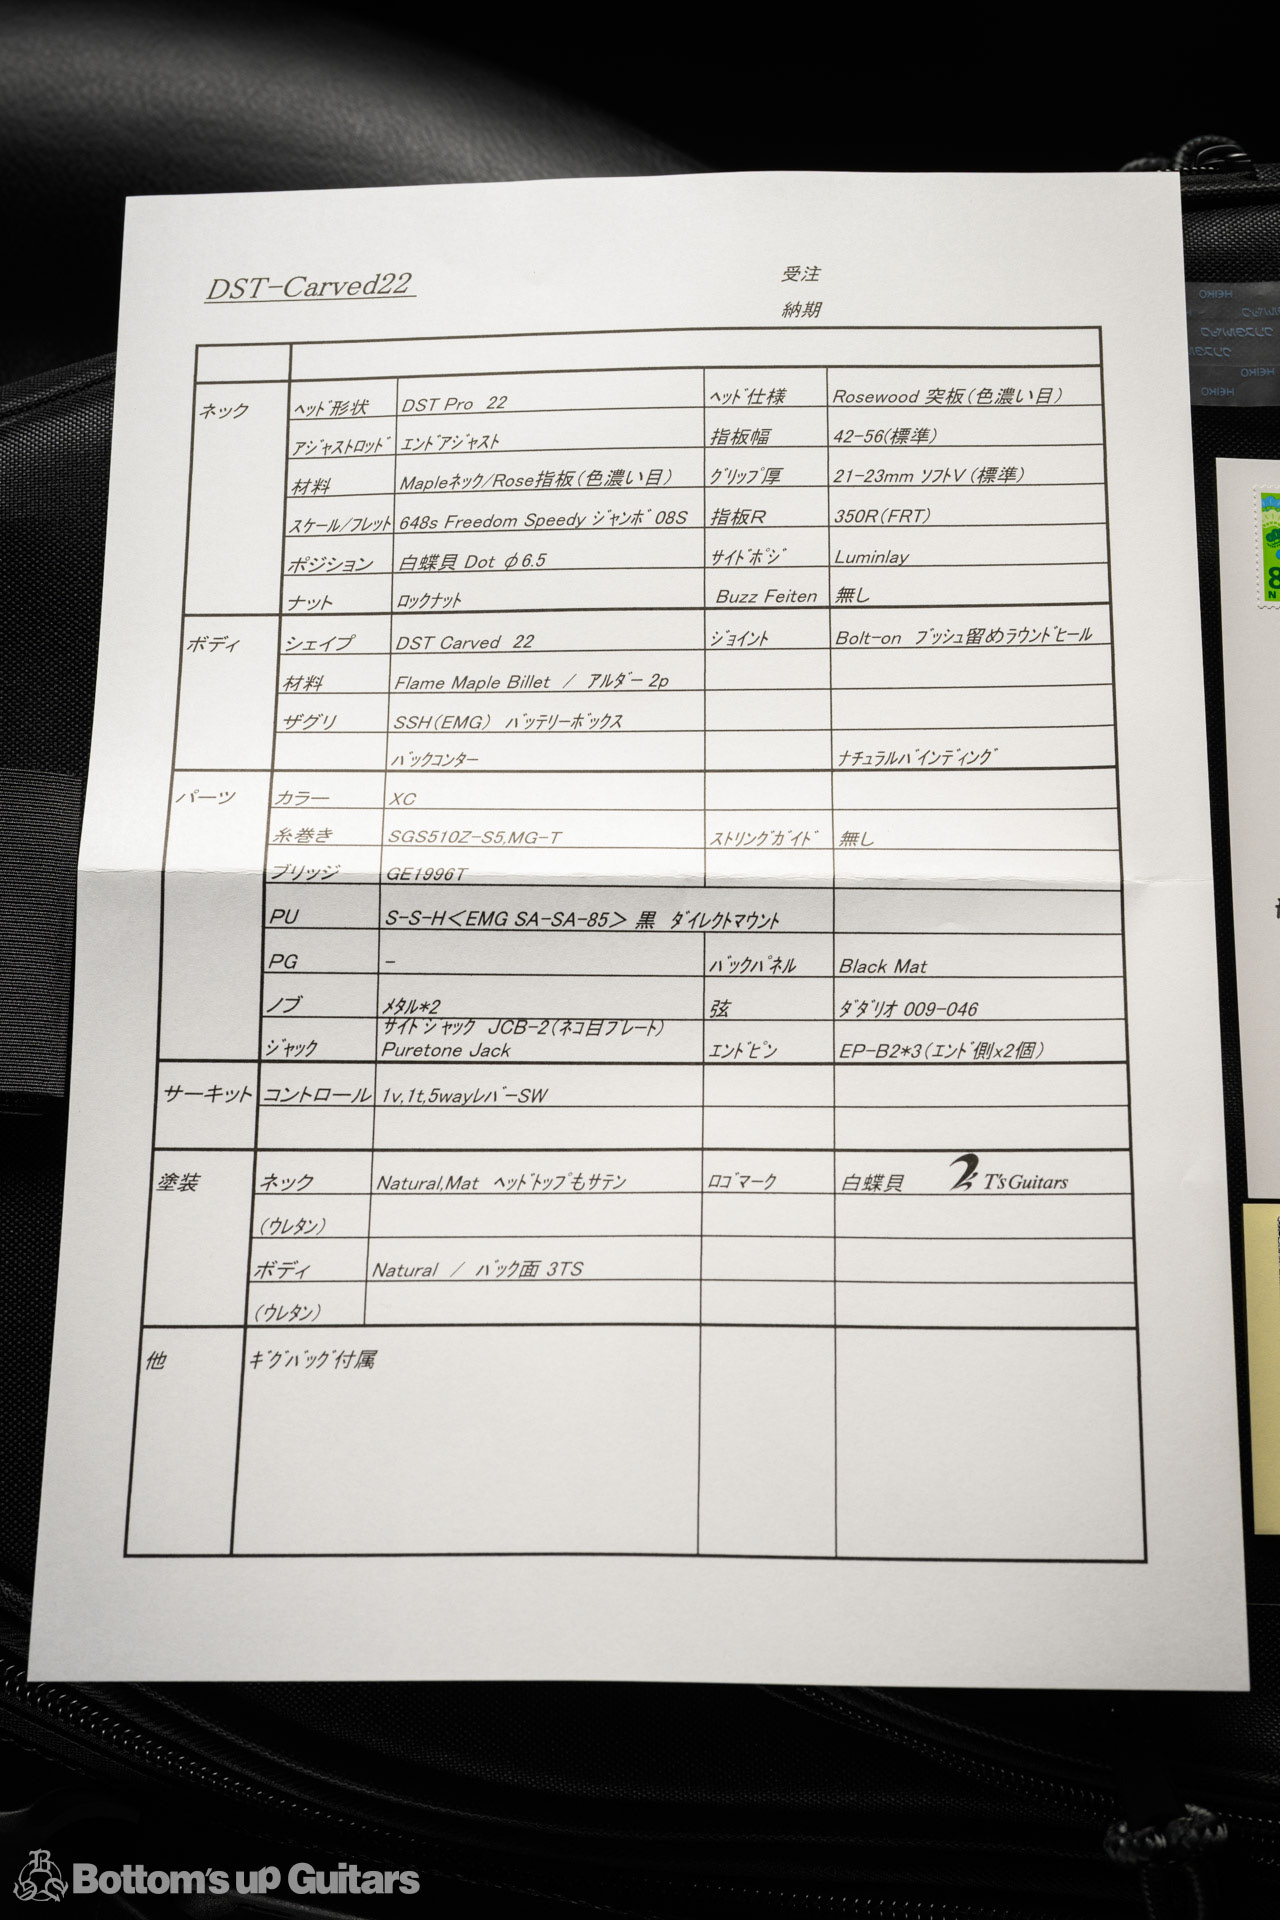 DST-Carved22
受注
納期
ネック
ﾍｯﾄﾞ形状 DST Pro 22 ﾍｯﾄﾞ仕様 Rosewood 突板(色濃い目)
ｱｼﾞｬｽﾄﾛｯﾄﾞ ｴﾝﾄﾞｱｼﾞｬｽﾄ 指板幅 42-56(標準)
材料 Mapleﾈｯｸ/Rose指板(色濃い目) ｸﾞﾘｯﾌﾟ厚 21-23mm ｿﾌﾄV (標準)
ｽｹｰﾙ/ﾌﾚｯﾄ 648s Freedom Speedy ｼﾞｬﾝﾎﾞ 08S 指板R 350R(FRT)
ポジション 白蝶貝 Dot φ6.5 ｻｲﾄﾞﾎﾟｼﾞ Luminlay
ナット ﾛｯｸﾅｯﾄ Buzz Feiten 無し
ボディ シェイプ DST Carved 22 ｼﾞｮｲﾝﾄ Bolt-on ﾌﾞｯｼｭ留めﾗｳﾝﾄﾞﾋｰﾙ
材料 Flame Maple Billet / ｱﾙﾀﾞｰ 2p
ザグリ SSH(EMG) ﾊﾞｯﾃﾘｰﾎﾞｯｸｽ
ﾊﾞｯｸｺﾝﾀｰ ﾅﾁｭﾗﾙﾊﾞｲﾝﾃﾞｨﾝｸﾞ
パーツ カラー XC
糸巻き SGS510Z-S5,MG-T ｽﾄﾘﾝｸﾞｶﾞｲﾄﾞ 無し
ブリッジ GE1996T
PU S-S-H<EMG SA-SA-85> 黒 ﾀﾞｲﾚｸﾄﾏｳﾝﾄ
PG - ﾊﾞｯｸﾊﾟﾈﾙ Black Mat
ノブ ﾒﾀﾙ*2 弦 ﾀﾞﾀﾞﾘｵ 009-046
ｻｲﾄﾞｼﾞｬｯｸ JCB-2(ﾈｺ目ﾌﾟﾚｰﾄ)
ｼﾞｬｯｸ Puretone Jack ｴﾝﾄﾞﾋﾟﾝ EP-B2*3(ｴﾝﾄﾞ側x2個)
サーキット コントロール 1v,1t,5wayﾚﾊﾞｰSW
塗装 ネック Natural,Mat ﾍｯﾄﾞﾄｯﾌﾟもｻﾃﾝ ﾛｺﾞﾏｰｸ 白蝶貝 T's Guitars
(ｳﾚﾀﾝ)
ボディ Natural / ﾊﾞｯｸ面 3TS
(ｳﾚﾀﾝ)
他 ｷﾞｸﾞﾊﾞｯｸﾞ付属
HEIKO
HEIKO
HEIKO
Bottom's up Guitars